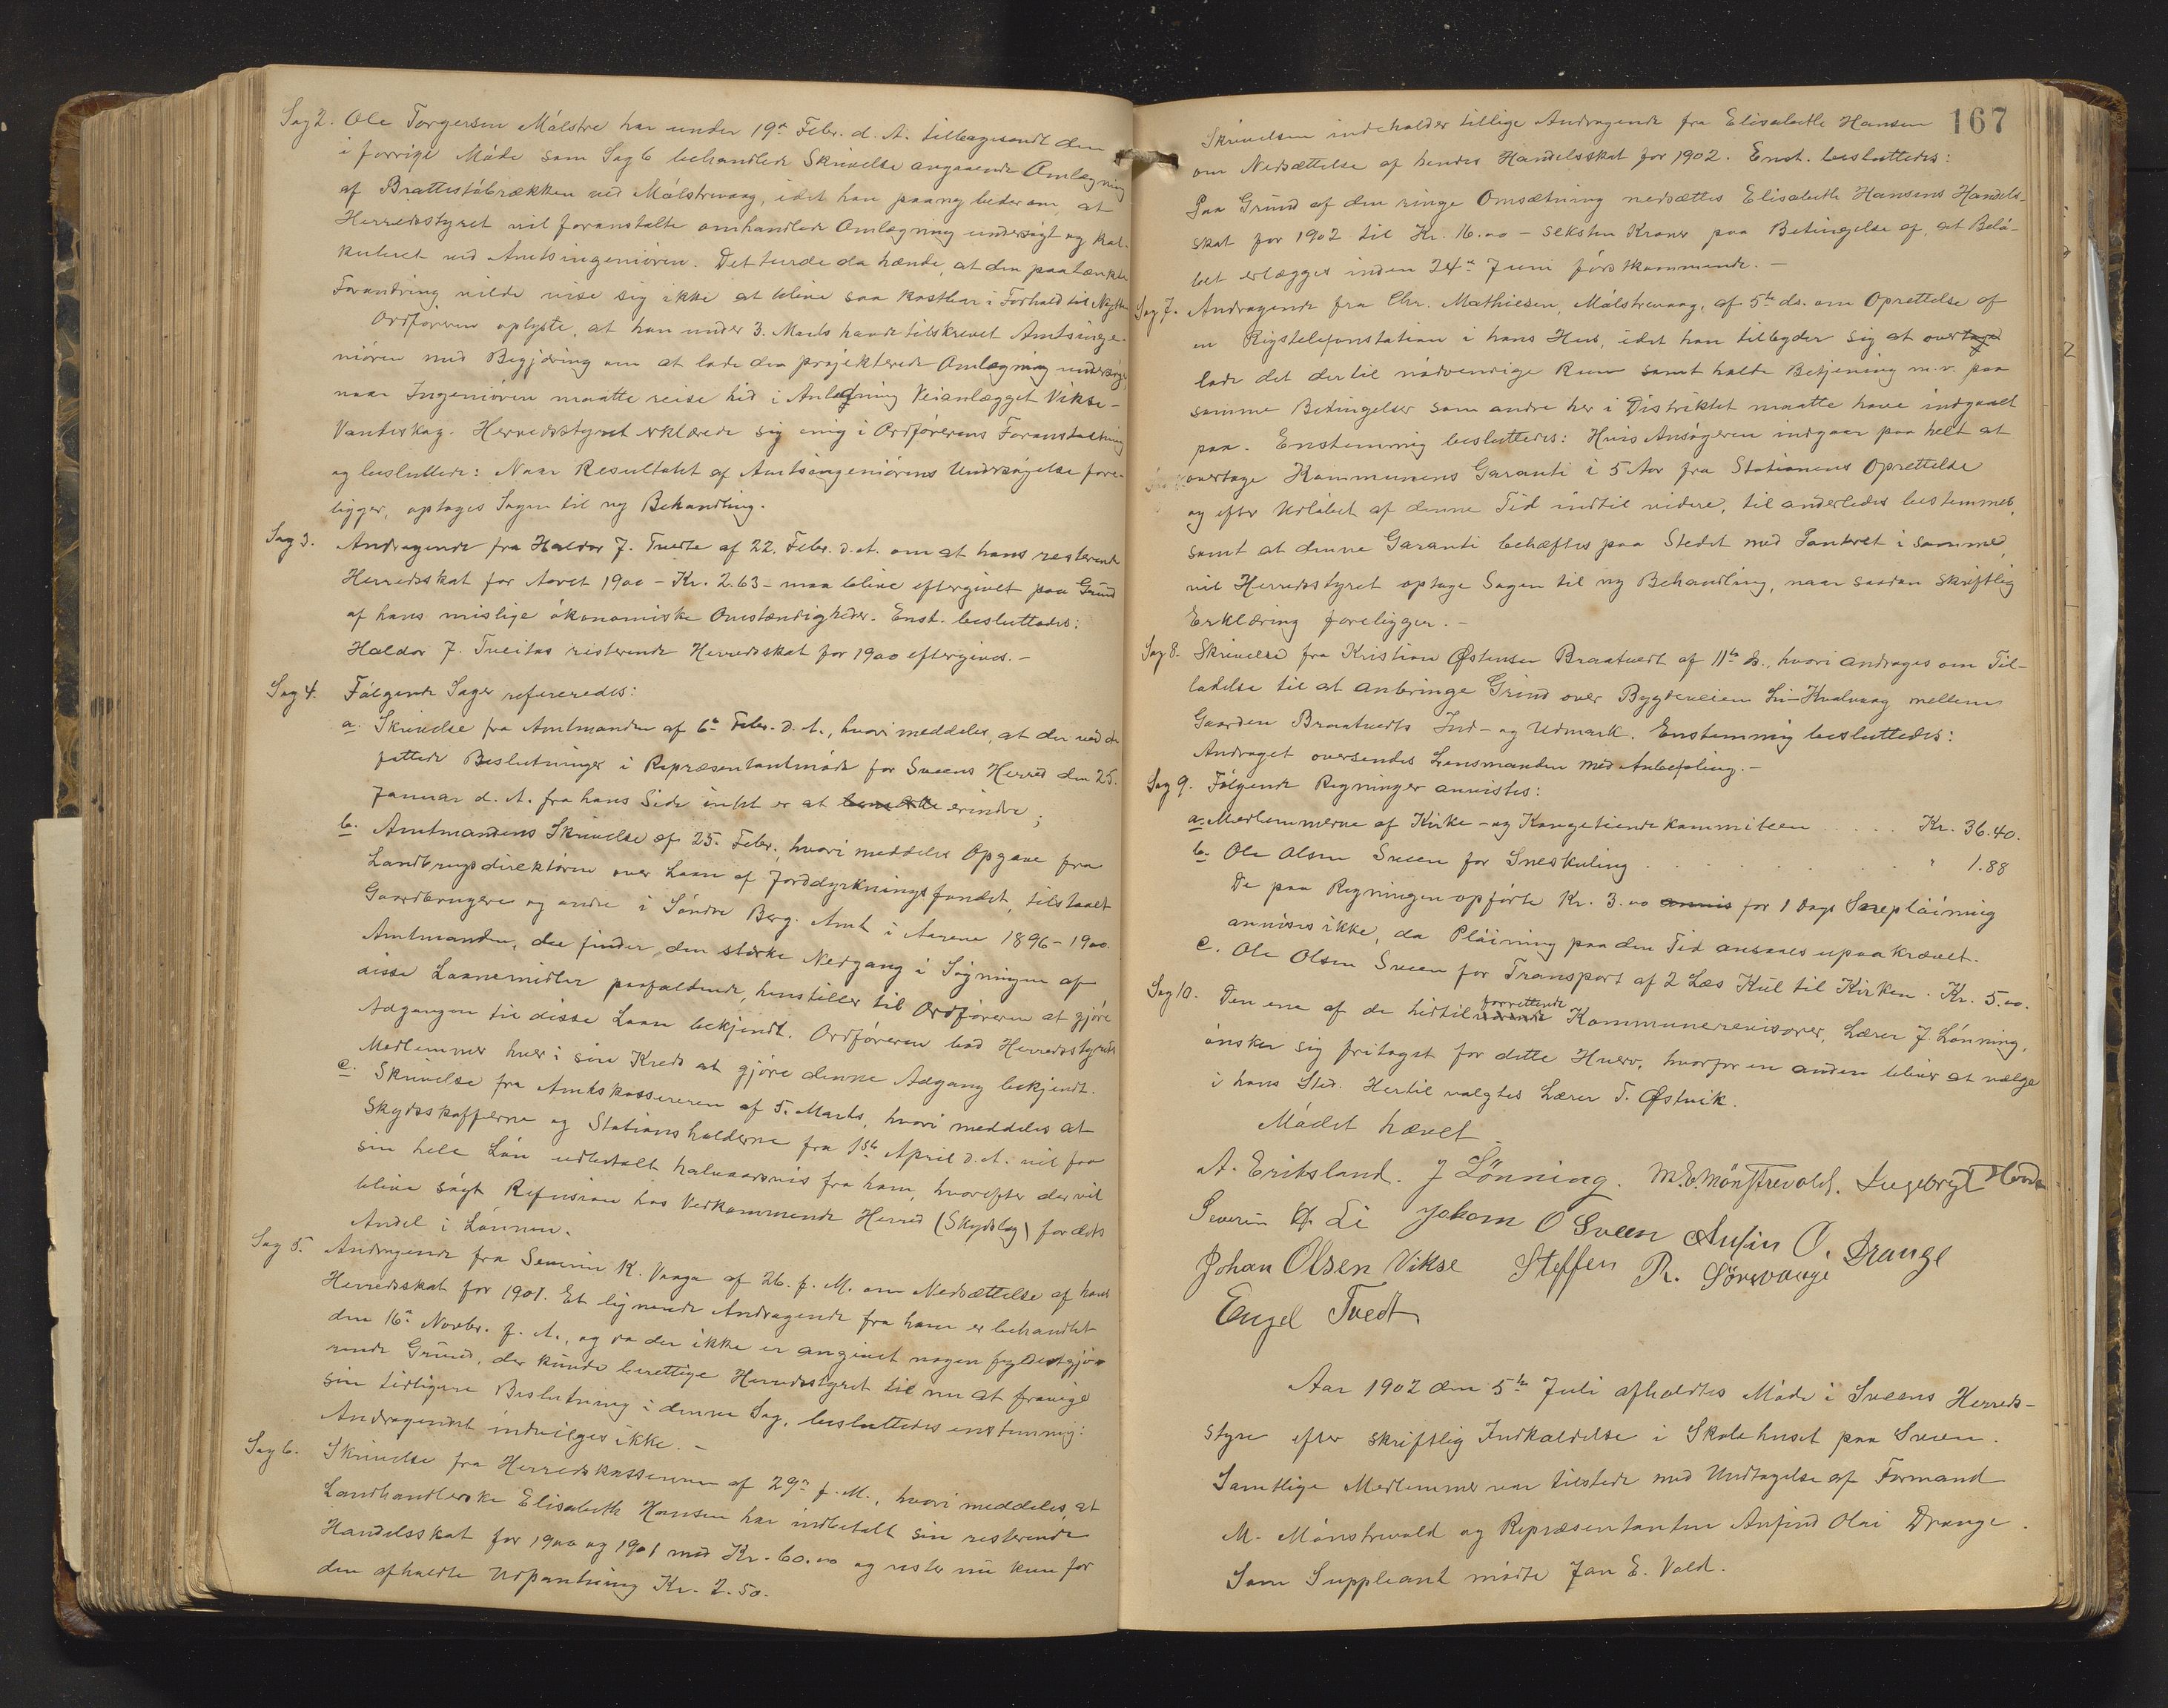 Sag 2. Ole Torgersen Målstre har under 19de Febr. d. A. tilbagesendt den
i forrige Møde som Sag 6 behandlede Skrivelse angaaende Omlægning
af Brattestøbrækken ved Målstrevaag, idet han paany beder om, at
Herredsstyret vil foranstalte omhandlede Omlægning undersøgt og kal-
kuleret ved Amtsingeniøren. Det turde da hænde, at den paatænkte
Forandring vilde vise sig ikke at blive saa kostbar i Forhold til Nytten
Ordføreren oplyste, at han under 3. Marts havde tilskrevet Amtsinge-
niøren med Begjæring om at lade den projekterede Omlægning undersøge
naar Ingeniøren maatte reise hid i Anledning Veianlægget Vikse-
Vandaskog. Herredsstyret erklærede sig enig i Ordførerens Foranstaltning
og besluttede: Naar Resultatet af Amtsingeniørens Undersøgelse fore-
ligger, optages Sagen til ny Behandling.
Sag 3. Andragende fra Haldor J. Tveite af 22. Febr. d. A. om at hans resterende
Herredsskat for Aaret 1900 - Kr. 2.63 - maa blive eftergivet paa Grund
af hans mislige økonomiske Omstændigheder. Enst. besluttedes:
Haldor J. Tveitas resterende Herredsskat for 1900 eftergives. -
Sag 4. Følgende Sager refereredes:
a. Skrivelse fra Amtmanden af 6te Febr. d. A., hvori meddeles, at der ved de
fattede Beslutninger i Repræsentantmøde for Sveens Herred den 25.
Januar d. A. fra hans Side intet er at erindre;
b. Amtmandens Skrivelse af 25. Febr., hvori meddeles Opgave fra
Landbrugsdirektøren over Laan af Jorddyrkningsfondet, tilstaaet
Gaardbrugere og andre i Søndre Berg. Amt i Aarene 1896-1900.
Amtmanden, der finder den stærke Nedgang i Søgningen af
disse Laanemidler paafaldende, henstiller til Ordføreren at gjøre
Adgangen til disse Laan bekjendt. Ordføreren bad Herredsstyrets
Medlemmer hver i sin Kreds at gjøre denne Adgang bekjendt.
c. Skrivelse fra Amtskassereren af 5. Marts, hvori meddeles at
Skydsskafferne og Stationsholderne fra 1ste April d. A. vil faa
sin hele Løn udbetalt halvaarsvis fra ham, hvorefter der vil
blive søgt Refusion hos Vedkommende Herred (Skydslag) for dets
Andel i Lønnen.
Sag 5. Andragende fra Severin K. Vaaga af 26. f. M. om Nedsættelse af hans
Herredsskat for 1901. Et lignende Andragende fra ham er behandlet
den 16de Novbr. f. A., og da der ikke er angivet nogen fyldestgjø-
rende Grund, der kunde berettige Herredsstyret til nu at fravige
sin tidligere Beslutning i denne Sag, besluttedes enstemmig:
Andragendet indvilges ikke. -
Sag 6. Skrivelse fra Herredskassereren af 29de f. M., hvori meddeles, at
Landhandlerske Elisabeth Hansen har indbetalt sin resterende
Handelsskat for 1900 og 1901 med Kr. 60.00 og rester nu kun for
den afholdte Udpantning Kr. 2.50.
167
Skrivelsen indeholder tillige Andragende fra Elisabeth Hansen
om Nedsættelse af hendes Handelsskat for 1902. Enst. besluttedes:
Paa Grund af den ringe Omsætning nedsættes Elisabeth Hansens Handels-
skat for 1902 til Kr. 16.00 - seksten Kroner paa Betingelse af, at Belø-
bet erlægges inden 24de Juni førstkommende. -
Sag 7. Andragende fra Chr. Mathiesen, Målstrevaag, af 5te ds. om Oprettelse af
en Rigstelefonstation i hans Hus, idet han tilbyder sig at overtage
lade det dertil nødvendige Rum samt holde Betjening m.v. paa
samme Betingelser som andre her i Distriktet maatte have indgaaet
paa. Enstemmig besluttedes: Hvis Ansøgeren indgaar paa helt at
overtage Kommunens Garanti i 5 Aar fra Stationens Oprettelse
og efter Udløbet af denne Tid indtil videre, til anderledes bestemmes,
samt at denne Garanti behæftes paa Stedet med Panteret i samme,
vil Herredsstyret optage Sagen til ny Behandling, naar saadan skriftlig
Erklæring foreligger. -
Sag 8. Skrivelse fra Kristian Østensen Braatvedt af 11te ds., hvori andrages om Til-
ladelse til at anbringe Grind over Bygdeveien Li-Hvalvaag mellem
Gaarden Braatvedts Ind- og Udmark. Enstemmig besluttedes:
Andraget oversendes Lensmanden med Anbefaling. -
Sag 9. Følgende Regninger anvistes:
a. Medlemmerne af Kirke- og Kongetiendekommiteen . . . . Kr. 36.40.
b. Ole Olsen Sveen for Sneskuling . . . . . " 1.88
De paa Regningen opførte Kr. 3.00 annis for 1 Dags Sneplöining
anvises ikke, da Plöining paa den Tid ansaaes upaakrævet.
c. Ole Olsen Sveen for Transport af 2 Læs Kul til Kirken. Kr. 5.00.
Sag 10. Den ene af de hidtil forrettende Kommunerevisorer, Lærer J. Lønning,
ønsker sig fritaget for dette Hverv, hvorfor en anden bliver at vælge
i hans Sted. Hertil valgtes Lærer T. Østvik.
Mødet hævet.
A. Eriksland. J Lönning. M. E. Mönstrevold. Ingebrigt Hovda
Severin K. Li Johan O Sveen Anfin O. Drange
Johan Olsen Vikse Steffen P. Sörevaage
Engel Tvedt
Aar 1902 den 5te Juli afholdtes Møde i Sveens Herreds-
styre efter skriftlig Indkaldelse i Skolehuset paa Sveen.
Samtlige Medlemmer var tilstede med Undtagelse af Formand
M. Mønstrevold og Repræsentanten Anfind Olai Drange.
Som Suppleant mødte Jan E. Vold.